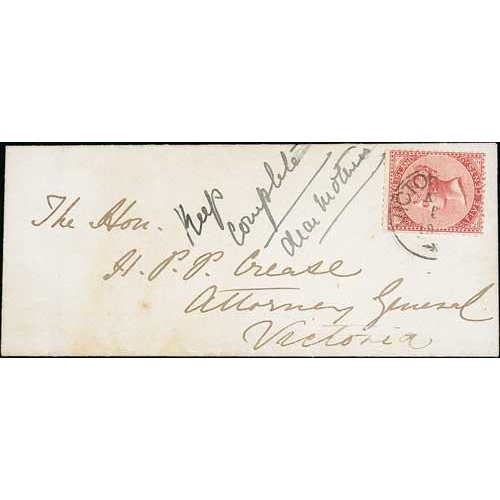 The Hon.
H. P. P. Crease
Attorney General
Victoria
Keep
complete
dear mothers
VICTO